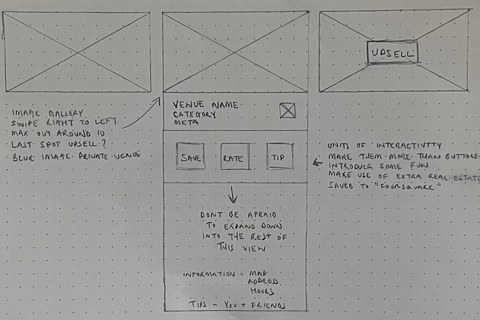 UPSELL
IMAGE GALLERY
SWIPE RIGHT TO LEFT
MAX OUT AROUND 10
LAST SPOT UPSELL?
BLUR IMAGE · PRIVATE VENUE
VENUE NAME
CATEGORY
META
SAVE
RATE
TIP
UNITS OF INTERACTIVITY
MAKE THEM MORE THAN BUTTONS
INTRODUCE SOME FUN
MAKE USE OF EXTRA REAL ESTATE
SAVED TO "FOURSQUARE"
DON'T BE AFRAID
TO EXPAND DOWN
INTO THE REST OF
THIS VIEW
INFORMATION = MAP
ADDRESS
HOURS
TIPS - YOU + FRIENDS